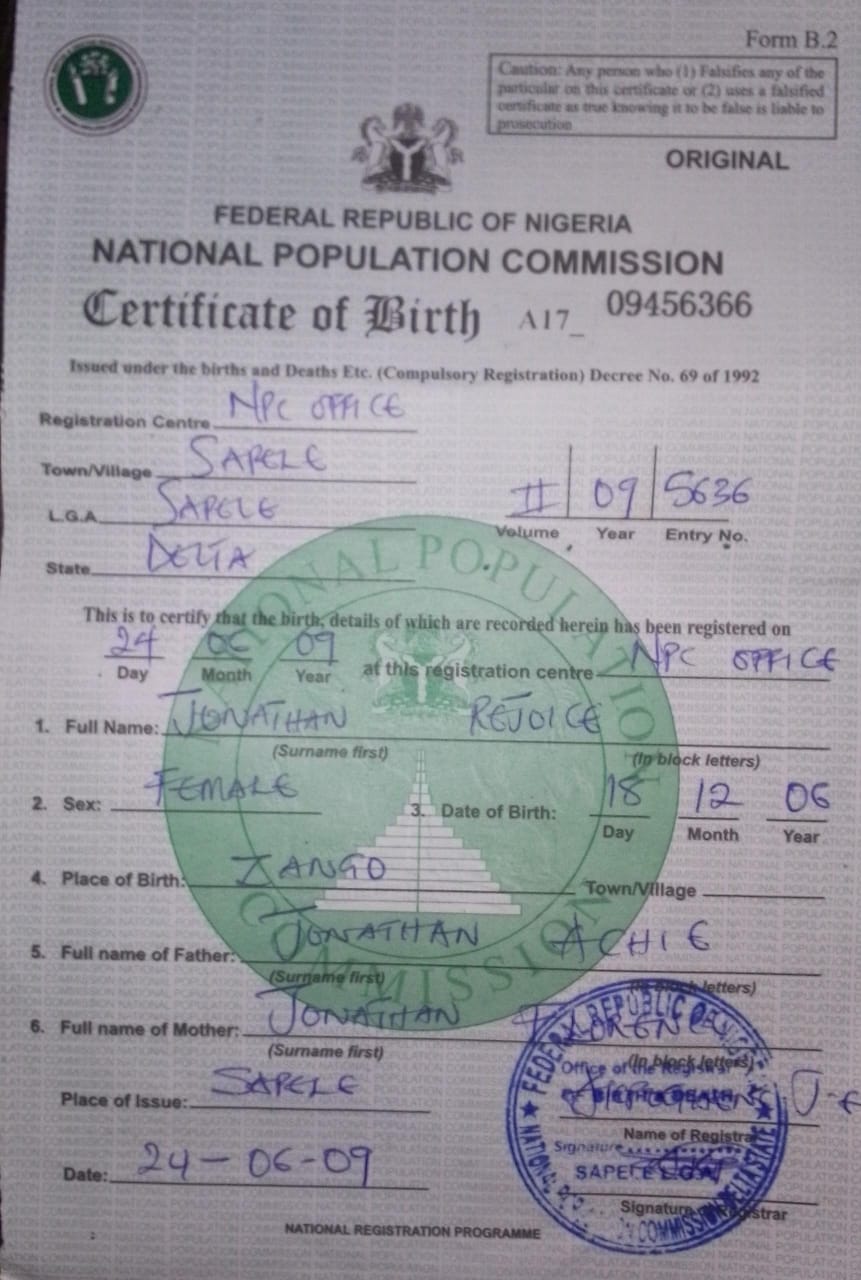 Form B.2
Caution: Any person who (1) Falsifies any of the
particular on this certificate or (2) uses a falsified
certificate as true knowing it to be false is liable to
prosecution
ORIGINAL
FEDERAL REPUBLIC OF NIGERIA
NATIONAL POPULATION COMMISSION
Certificate of Birth A17_ 09456366
Issued under the births and Deaths Etc. (Compulsory Registration) Decree No. 69 of 1992
Registration Centre NPC OFFICE
Town/Village SAPELE
L.G.A. SAPELE
II 09 5636
Volume Year Entry No.
State DELTA
This is to certify that the birth, details of which are recorded herein has been registered on
24 06 09 at this registration centre NPC OFFICE
Day Month Year
1. Full Name: JONATHAN REJOICE
(Surname first) (In block letters)
2. Sex: FEMALE 3. Date of Birth: 18 12 06
Day Month Year
4. Place of Birth: ZANGO Town/Village
5. Full name of Father: JONATHAN ACHIE
(Surname first) (In block letters)
6. Full name of Mother: JONATHAN
(Surname first) (In block letters)
Place of Issue: SAPELE
Name of Registrar
Date: 24-06-09
Signature of Registrar
NATIONAL REGISTRATION PROGRAMME
NATIONAL POPULATION COMMISSION
FEDERAL REPUBLIC OF
Office of the Registrar
Signature
SAPELE L.G.A
COMMISSION DELTA STATE